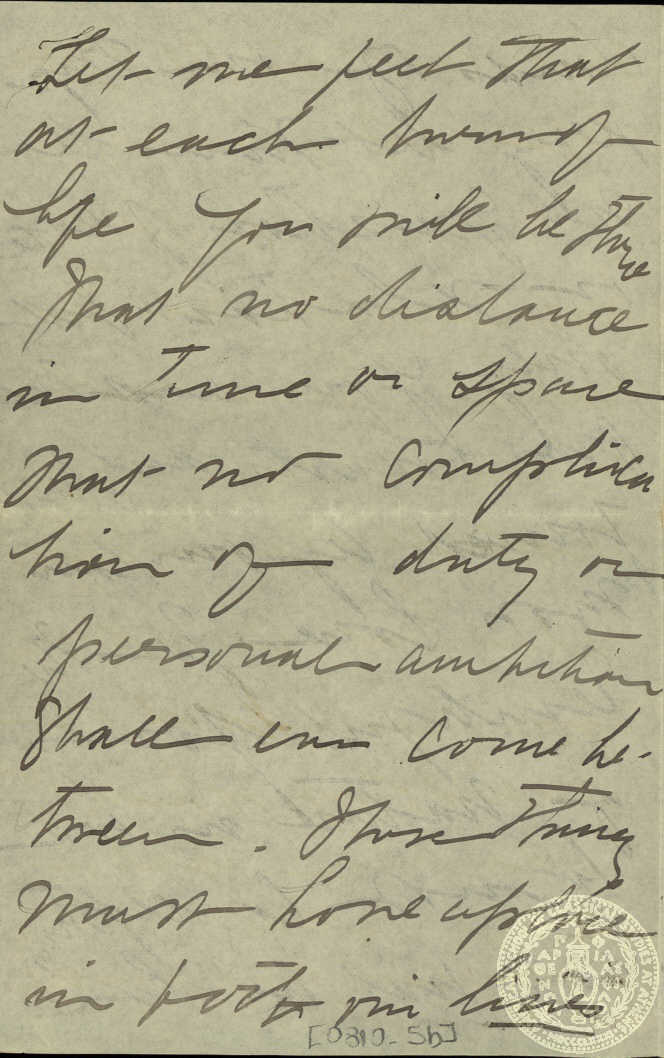 Let me feel that
at each turn of
life you will be there
That no distance
in time or space
that no complica
tion of duty or
personal ambition
shall ever come be-
tween. Those things
must have a place
in both our lives
[0810-5b]